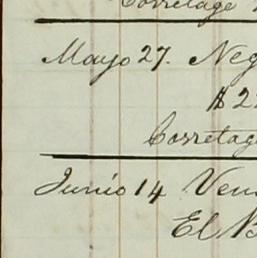 Corretage
Mayo 27. Neg
$ 2
Corretag
Junio 14 Ven
El B